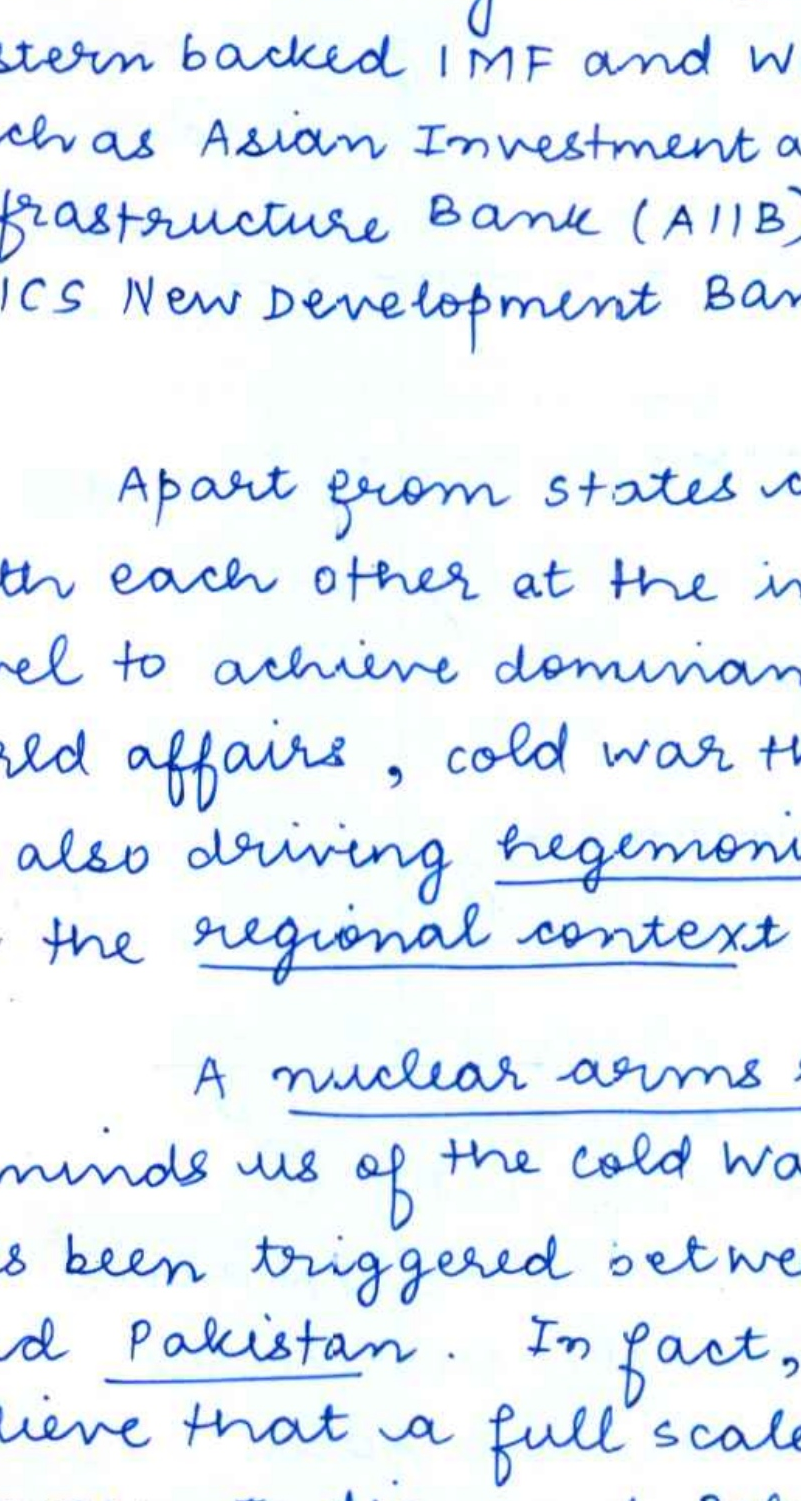 stern backed IMF and W
ch as Asian Investment a
frastructure Bank (AIIB)
ICS New Development Ban
Apart from states c
th each other at the in
vel to achieve dominan
rld affairs, cold war th
also driving hegemoni
the regional context
A nuclear arms
minds us of the cold wa
s been triggered betwe
nd Pakistan. In fact,
lieve that a full scale